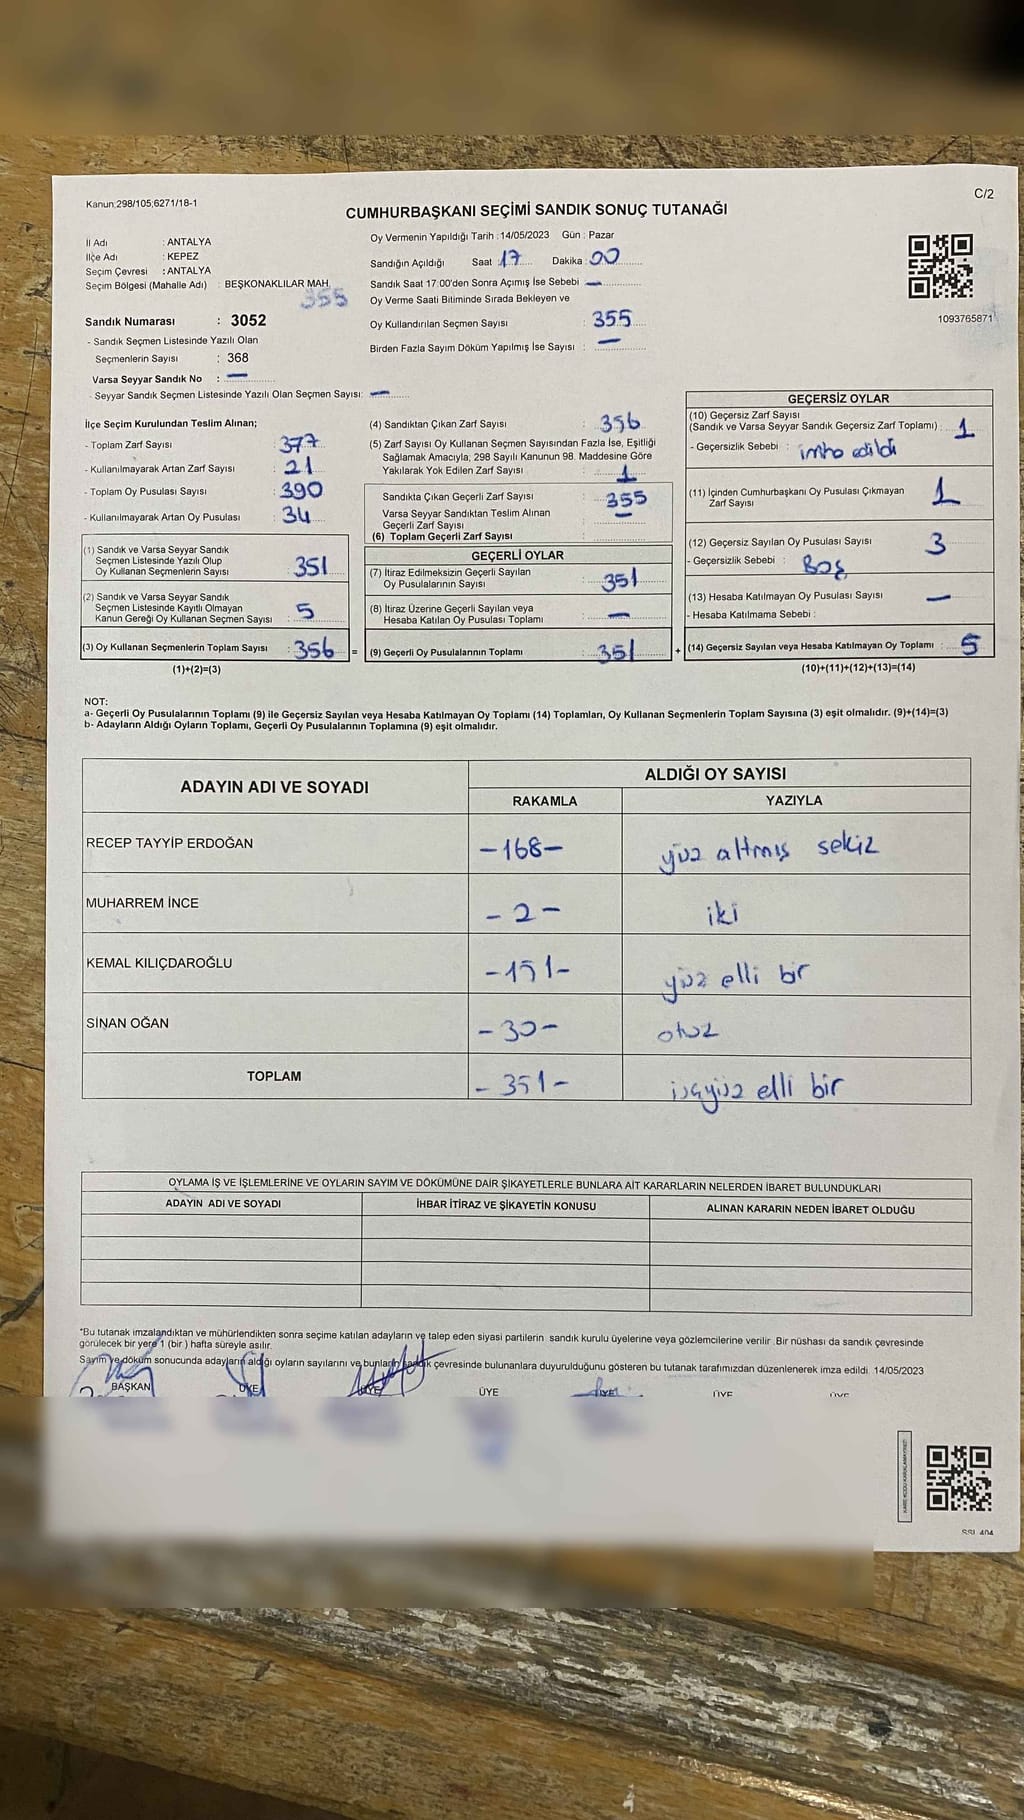 Kanun:298/105;6271/18-1
C/2
CUMHURBAŞKANI SEÇİMİ SANDIK SONUÇ TUTANAĞI
İl Adı : ANTALYA
İlçe Adı : KEPEZ
Seçim Çevresi : ANTALYA
Seçim Bölgesi (Mahalle Adı) : BEŞKONAKLILAR MAH.
355
Sandık Numarası : 3052
- Sandık Seçmen Listesinde Yazılı Olan
Seçmenlerin Sayısı : 368
Varsa Seyyar Sandık No : —
- Seyyar Sandık Seçmen Listesinde Yazılı Olan Seçmen Sayısı: —
Oy Vermenin Yapıldığı Tarih : 14/05/2023 Gün : Pazar
Sandığın Açıldığı Saat : 17 Dakika : 00
Sandık Saat 17:00'den Sonra Açımış İse Sebebi —
Oy Verme Saati Bitiminde Sırada Bekleyen ve
Oy Kullandırılan Seçmen Sayısı : 355
Birden Fazla Sayım Döküm Yapılmış İse Sayısı : —
1093765871
İlçe Seçim Kurulundan Teslim Alınan;
- Toplam Zarf Sayısı : 377
- Kullanılmayarak Artan Zarf Sayısı : 21
- Toplam Oy Pusulası Sayısı : 390
- Kullanılmayarak Artan Oy Pusulası : 34
(1) Sandık ve Varsa Seyyar Sandık
Seçmen Listesinde Yazılı Olup
Oy Kullanan Seçmenlerin Sayısı : 351
(2) Sandık ve Varsa Seyyar Sandık
Seçmen Listesinde Kayıtlı Olmayan
Kanun Gereği Oy Kullanan Seçmen Sayısı : 5
(3) Oy Kullanan Seçmenlerin Toplam Sayısı : 356 =
(1)+(2)=(3)
(4) Sandıktan Çıkan Zarf Sayısı : 356
(5) Zarf Sayısı Oy Kullanan Seçmen Sayısından Fazla İse, Eşitliği
Sağlamak Amacıyla; 298 Sayılı Kanunun 98. Maddesine Göre
Yakılarak Yok Edilen Zarf Sayısı : 1
Sandıkta Çıkan Geçerli Zarf Sayısı : 355
Varsa Seyyar Sandıktan Teslim Alınan
Geçerli Zarf Sayısı : —
(6) Toplam Geçerli Zarf Sayısı :
GEÇERLİ OYLAR
(7) İtiraz Edilmeksizin Geçerli Sayılan
Oy Pusulalarının Sayısı : 351
(8) İtiraz Üzerine Geçerli Sayılan veya
Hesaba Katılan Oy Pusulası Toplamı : —
(9) Geçerli Oy Pusulalarının Toplamı : 351 +
GEÇERSİZ OYLAR
(10) Geçersiz Zarf Sayısı
(Sandık ve Varsa Seyyar Sandık Geçersiz Zarf Toplamı) : 1
- Geçersizlik Sebebi : imha edildi
(11) İçinden Cumhurbaşkanı Oy Pusulası Çıkmayan
Zarf Sayısı 1
(12) Geçersiz Sayılan Oy Pusulası Sayısı 3
- Geçersizlik Sebebi : Boş
(13) Hesaba Katılmayan Oy Pusulası Sayısı —
- Hesaba Katılmama Sebebi :
(14) Geçersiz Sayılan veya Hesaba Katılmayan Oy Toplamı : 5
(10)+(11)+(12)+(13)=(14)
NOT:
a- Geçerli Oy Pusulalarının Toplamı (9) ile Geçersiz Sayılan veya Hesaba Katılmayan Oy Toplamı (14) Toplamları, Oy Kullanan Seçmenlerin Toplam Sayısına (3) eşit olmalıdır. (9)+(14)=(3)
b- Adayların Aldığı Oyların Toplamı, Geçerli Oy Pusulalarının Toplamına (9) eşit olmalıdır.
ADAYIN ADI VE SOYADI ALDIĞI OY SAYISI
RAKAMLA YAZIYLA
RECEP TAYYİP ERDOĞAN -168- yüz altmış sekiz
MUHARREM İNCE -2- iki
KEMAL KILIÇDAROĞLU -151- yüz elli bir
SİNAN OĞAN -30- otuz
TOPLAM -351- üçyüz elli bir
OYLAMA İŞ VE İŞLEMLERİNE VE OYLARIN SAYIM VE DÖKÜMÜNE DAİR ŞİKAYETLERLE BUNLARA AİT KARARLARIN NELERDEN İBARET BULUNDUKLARI
ADAYIN ADI VE SOYADI İHBAR İTİRAZ VE ŞİKAYETİN KONUSU ALINAN KARARIN NEDEN İBARET OLDUĞU
*Bu tutanak imzalandıktan ve mühürlendikten sonra seçime katılan adayların ve talep eden siyasi partilerin sandık kurulu üyelerine veya gözlemcilerine verilir. Bir nüshası da sandık çevresinde
görülecek bir yere 1 (bir) hafta süreyle asılır.
Sayım ve döküm sonucunda adayların aldığı oyların sayılarını ve bunların sandık çevresinde bulunanlara duyurulduğunu gösteren bu tutanak tarafımızdan düzenlenerek imza edildi. 14/05/2023
BAŞKAN ÜYE ÜYE ÜYE ÜYE ÜYE ÜYE